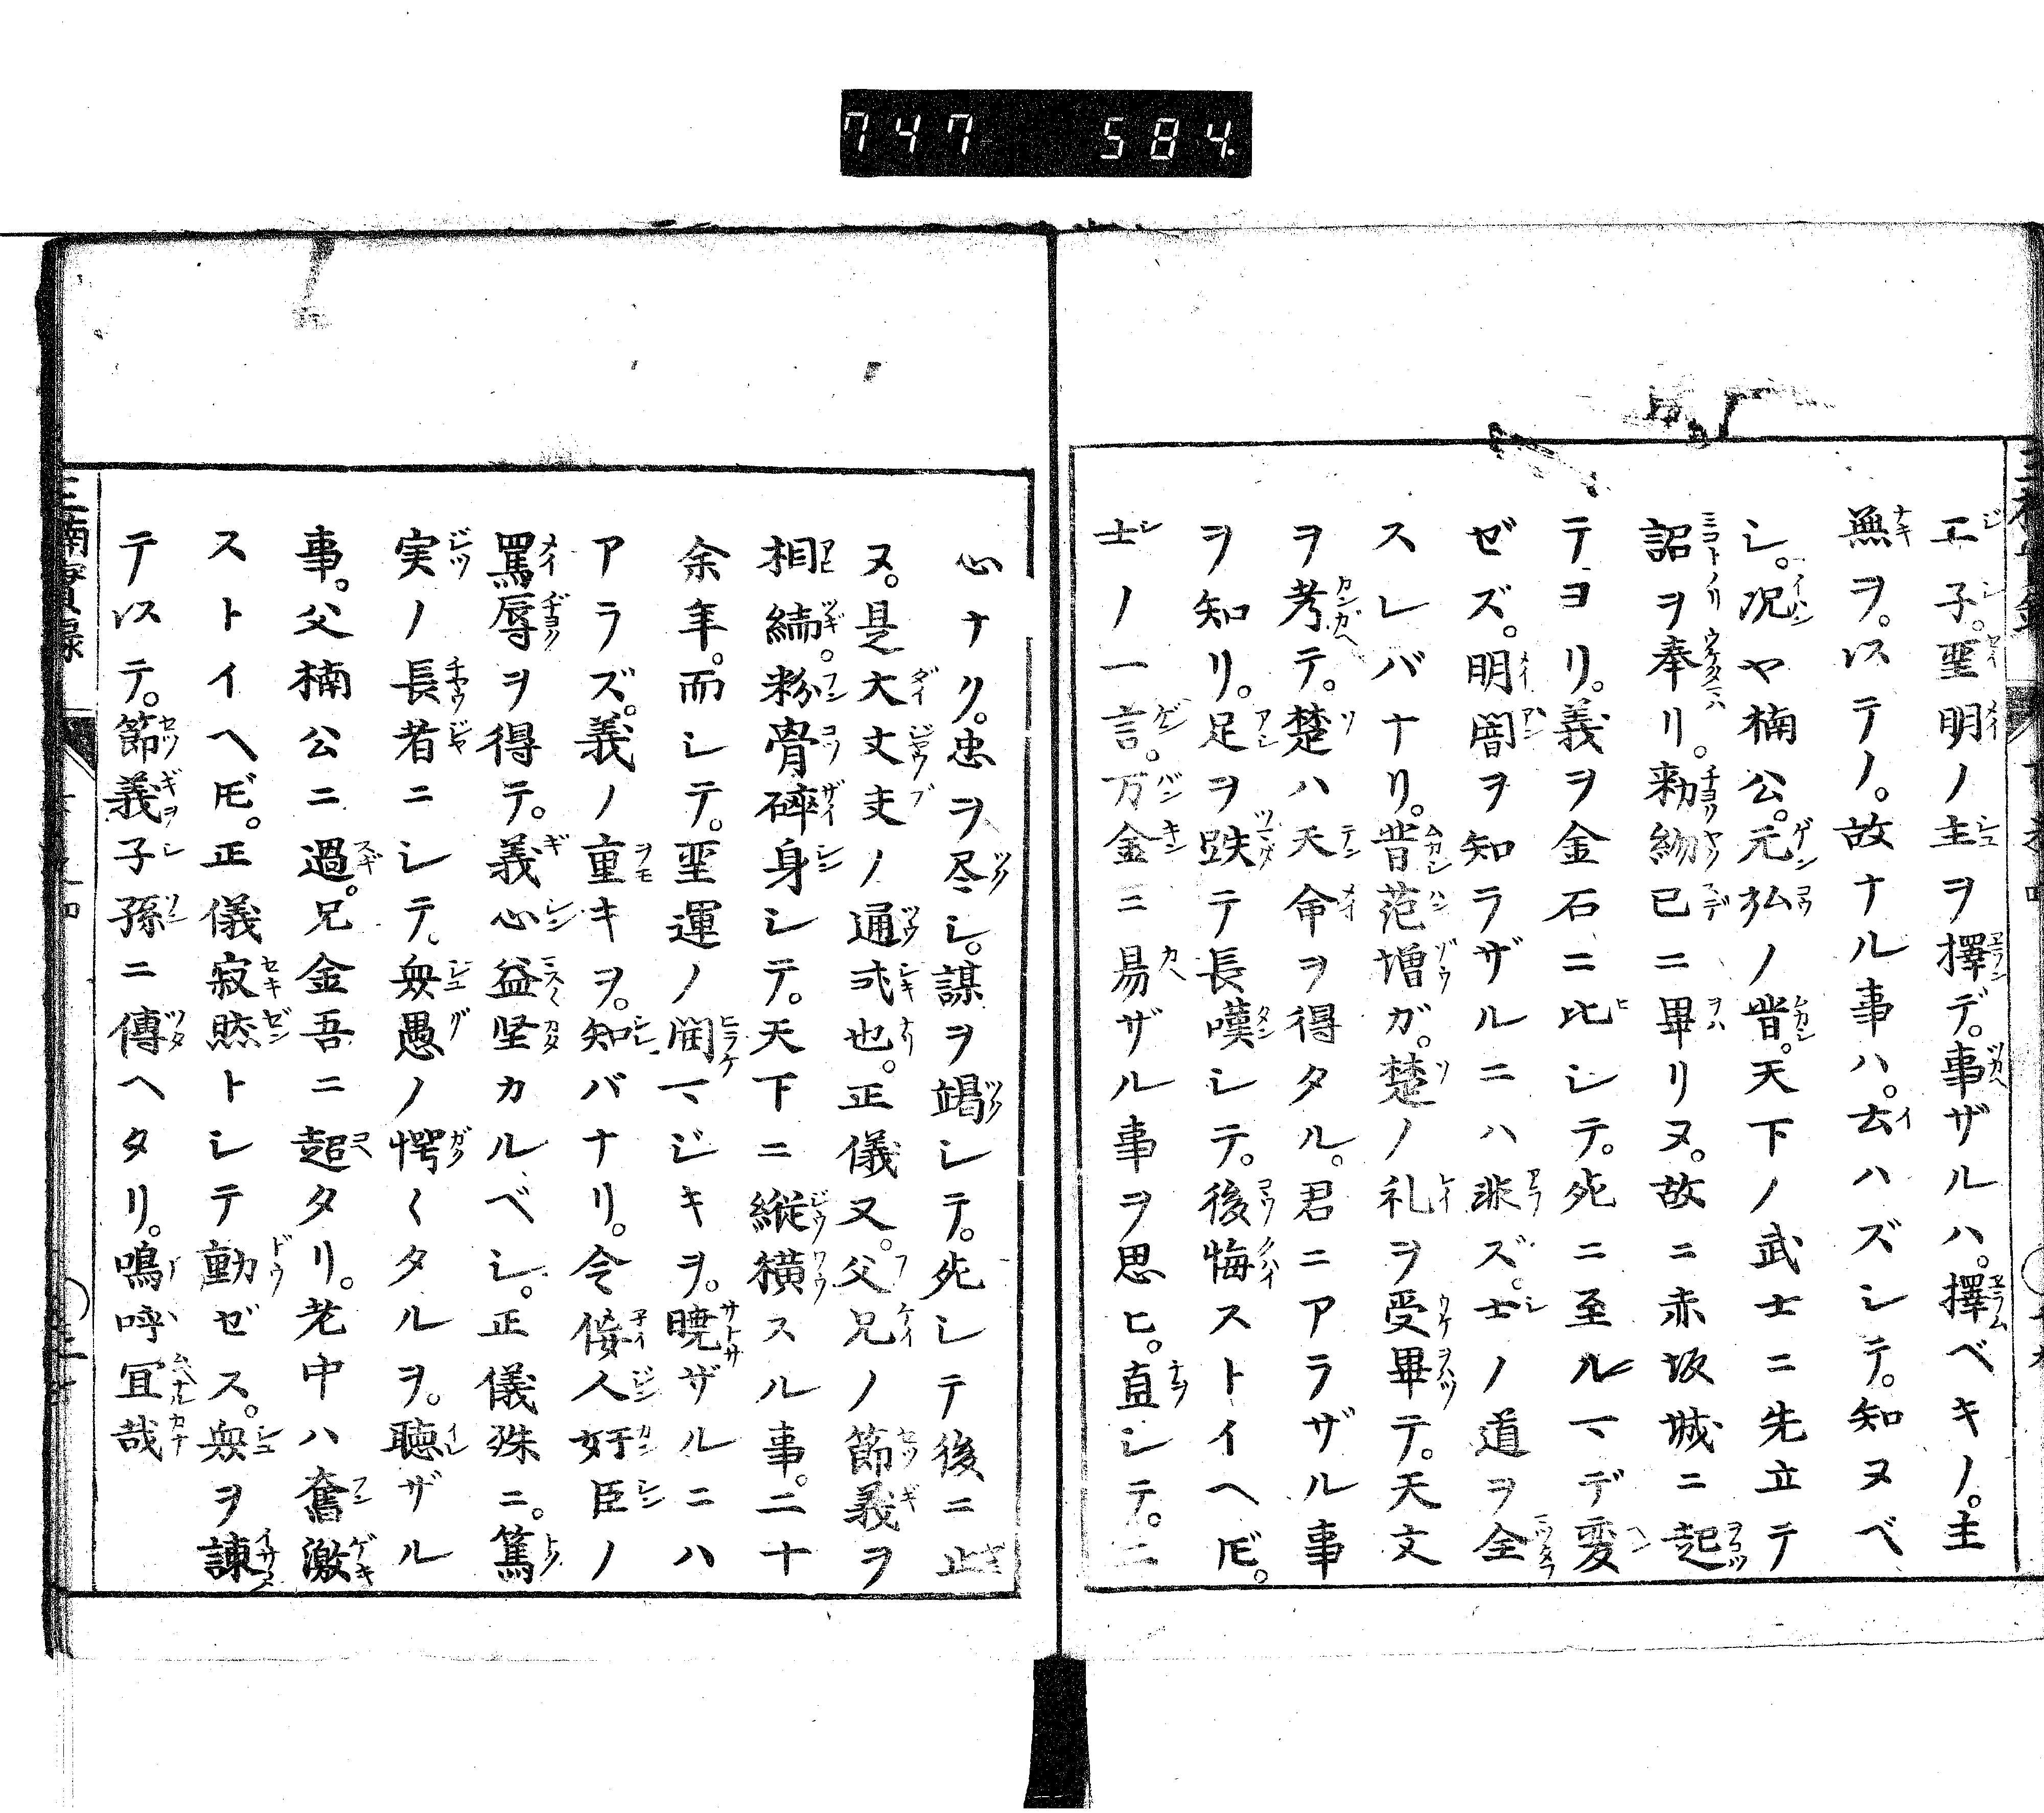 747 584
二子。聖明ノ主ヲ擇デ。事ザルハ。擇ベキノ。主
無ヲ。以テノ。故ナル事ハ。云ハズシテ。知ヌベ
シ。况ヤ楠公。元弘ノ昔。天下ノ武士ニ先立テ
詔ヲ奉リ。勅約已ニ畢リヌ。故ニ赤坂城ニ起
テヨリ。義ヲ金石ニ比シテ。死ニ至ルマデ変
ゼズ。明闇ヲ知ラザルニハ非ズ。士ノ道ヲ全
スレバナリ。昔范増ガ。楚ノ礼ヲ受畢テ。天文
ヲ考テ。楚ハ天命ヲ得タル。君ニアラザル事
ヲ知リ。足ヲ跌テ長嘆シテ。後悔ストイヘ𪜈。
士ノ一言。万金ニ易ザル事ヲ思ヒ。直シテ。二
心ナク。忠ヲ尽シ。謀ヲ竭シテ。死シテ後ニ止
ヌ。是大丈夫ノ通式也。正儀又。父兄ノ節義ヲ
相續。粉骨碎身シテ。天下ニ縦横スル事。二十
余年。而シテ。聖運ノ開マジキヲ。暁ザルニハ
アラズ。義ノ重キヲ。知バナリ。今佞人奸臣ノ
罵辱ヲ得テ。義心益坚カルベシ。正儀殊ニ。篤
実ノ長者ニシテ。衆愚ノ愕〱タルヲ。聴ザル
事。父楠公ニ過。兄金吾ニ超タリ。老中ハ奮激
ストイヘ𪜈。正儀寂然トシテ動ゼス。衆ヲ諌
テ以テ。節義子孫ニ傳ヘタリ。鳴呼冝哉
三楠實録